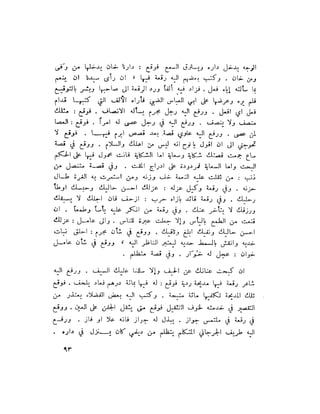 الوجه يدخل داره ويسترق السمع فوقع : دارنا خان يدخلها من وفى
ومن خان . وكتب بعضهم اليه رقعة فيها « ان رأى سيدنا ان ينعم
بما سألته إياه فعل . فزاد فيه ألفاً ورد الرقعة الى صاحبها وبشر بالتوقيع
فلم يره وعرضها على ابي العباس الضبي فأراه الألف التي كتبها قدام
فعل اي افعل . ورفع اليه رجل محرم يسأله الانصاف . فوقع : مثلك
منصف ولا ينصف . ورفع اليه في رجل عصى له امراً . فوقع : العصا
لمن عصى . ورفع اليه علوي قصة بعد قصص ابرم فيها . فوقع لا
تحوجني الى ان اقول يا نوح انه ليس من اهلك والسلام . ووقع في قصة
ساع جمعت قصتك شكاية وسعاية اما الشكاية فأنت محول فيها على الحكم
البحت واما السعاية فمردودة على ادراج المقت . وفي قصة متنصل من
ذنب : من ثقلت عليه النعمة خف وزنه ومن استمرت به الغرة طال
حزنه . وفي رقعة وكيل عزله : عزلك احسن حاليك وحبسك اوطأ
رحليك . وفي رقعة قائد بازاء حرب : ازحف فان اجلك لا يسبقك
ورزقك لا يتأخر عنك . وفي رقعة من انكر عليه يأساً وطمعاً . ان
قنعت من الطمع باليأس وإلا جعلت عبرة للناس . والى عامل : عزلك
احسن حاليك ونفيك ابلغ وثقيك . ووقع في شأن مجرم : احلق نبات
خديه وانقش بالسمط حديه ليعتبر الناظر اليه » ووقع في شأن عامل
خوان : عجل له خُوّار . وفي قصة متظلم .
ان كبحت عنانك عن الحيف وإلا سللنا عليك السيف . ورفع اليه
شاعر رقعة فيها مديحة ردية فوقع : له فيها بمائة درهم فعاد يلحف . فوقع
تلك المديحة تكفيها مائة منيحة . وكتب اليه بعض الفضلاء يعتذر من
التقصير في خدمته لخوف التثقيل فوقع متى يثقل الجفن على العين . ووقع
في رقعة في ملتمس جواز . يبذل له جواز فانه علا او فاز . ورفع
اليه ظريف الجرجاني المتكلم يتظلم من ديلمي كان ينزل في داره .
٩٣